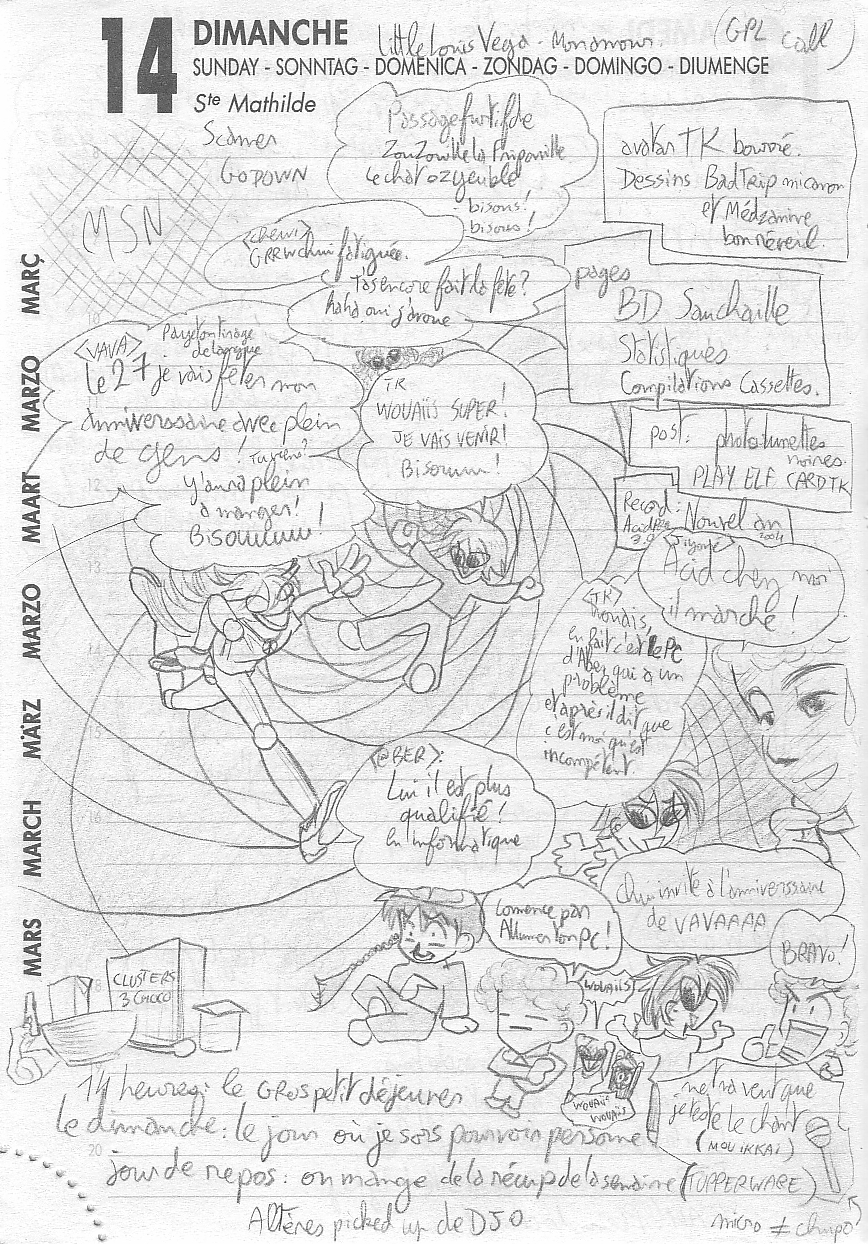 14 DIMANCHE
Little Louis Vega - Monamour. (GPL call)
SUNDAY - SONNTAG - DOMENICA - ZONDAG - DOMINGO - DIUMENGE
Ste Mathilde
Scaner
GODOWN
MSN
Passage furtif de
ZouZouille la Fripouille
le chat ozyeubleu
bisous!
bisous!
avatar TK bourré.
Dessins BadTrip micaron
et Médzanine
bonréveil.
<Chewi>
GRRWchui fatiguée.
T'as encore fait la fête?
haha oui j'avoue
pages
BD Sanchaille
Statistiques
Compilations Cassettes.
<VAVA>
Le 27 je vais fêter mon
anniverssaire avec plein
de gens! Tu viens?
y'aura plein
à manger!
Bisouuuuu!
TK
WOUAIIS SUPER!
JE VAIS VENIR!
Bisouuuu!
post: photo lunettes
noires.
PLAY ELF CARD TK
Record:
Nouvel an
2004
Acid chez moi
il marche!
<TK>
Mouais,
en fait c'est le PC
d'Aber qui a un
problème
et après il dit que
c'est moi qui est
incompétent.
<@BER>:
Lui il est plus
qualifié!
en informatique
comence par
Allumer ton PC!
Chui invité à l'anniverssaire
de VAVAAAA
BRAVO!
WOUAIIS
WOUAIIS
WOUAIIS
CLUSTERS
3 CHOCO
14 heures: le GROS petit déjeuner
le dimanche: le jour où je sors pour voir personne
jour de repos: on mange de la récup de la semaine (TUPPERWARE)
Altères picked up de DJO
ne travent que
je teste le chant
(MOUIKKAI)
micro ≠ chupa
MARS MARCH MÄRZ MARZO MAART MARZO MARÇ